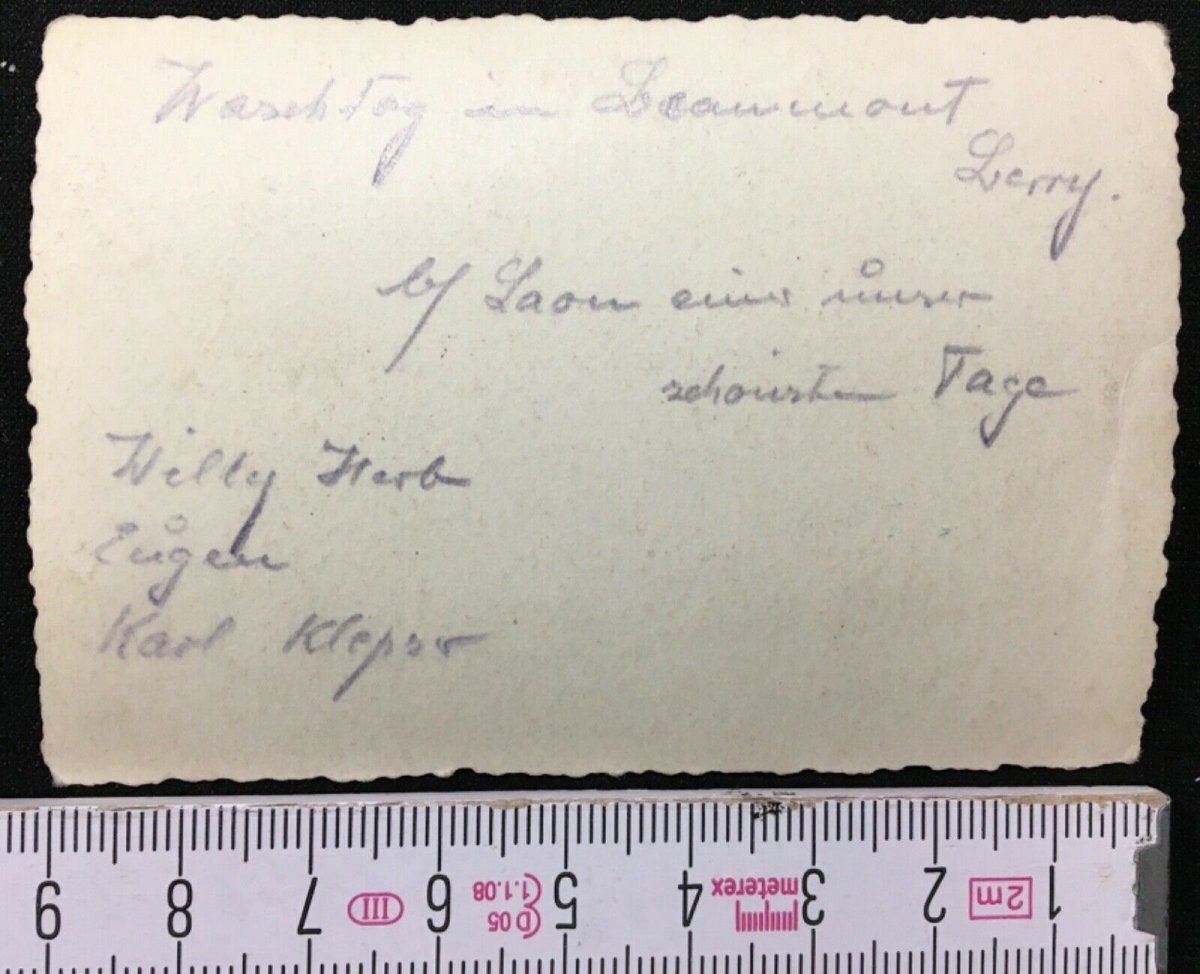 Waschtag in Beaumont
Berry.
b/ Laon einer unser
schönsten Tage
Willy Herb
Eugen
Karl Klepser
9 8 7 III 6 (1.1.08) D 05 5 4 meterex 3 2 2m 1